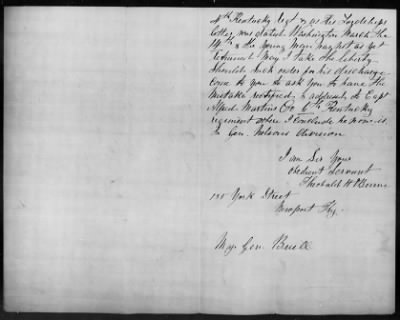 4th Kentucky Regt & as His Lordships
letter was dated Washington March the
14th & the young man may not as yet
returned May I take the liberty
should such order for his discharge
come to you to ask you to have the
mistake rectified, & address, to Capt
Alfred Martins Co 6th Kentucky
regiment where I conclude he now is.
In Gen. Nelsons Division
I am Sir Your
obedient Servant
Theobald
York Street
Newport Ky.
Maj. Gen. Buell